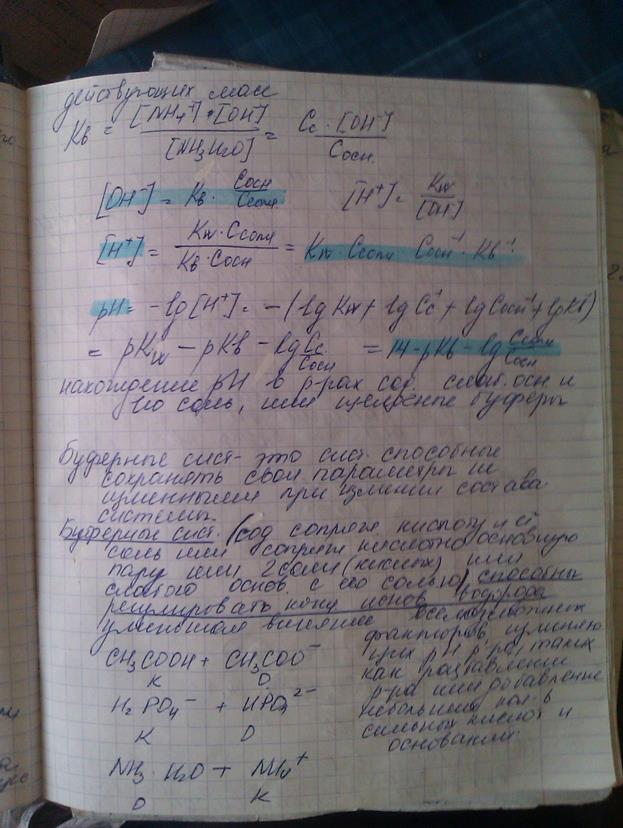 действующих масс
Kв = [NH4+]•[OH-] / [NH3H2O] = Cс·[OH-] / Cосн.
[OH-] = Kв · Cосн / Cсоли [H+] = Kw / [OH-]
[H+] = Kw·Cсоли / Kв·Cосн = Kw·Cсоли·Cосн⁻¹·Kв⁻¹
pH = -lg[H+] = -(lg Kw + lg Cс + lg Cосн⁻¹ + lg Kв⁻¹)
= pKw - pKв - lg Cс / Cосн = 14 - pKв - lg Cсоли / Cосн
нахождение pH в р-рах сод. слаб. осн и
его соль, или щелочные буферы
Буферные сист - это сист. способные
сохранять свои параметры не
изменными при измении состава
системы.
Буферные сист. (сод сопряж кислоту и её
соль или сопряж кислотно основную
пару или 2 соли (кислых) или
слабого основ. с его солью) способные
регулировать конц ионов водорода
уменьшая влияние всевозможных
факторов, изменяю
щих pH р-ра, таких
как разбавлении
р-ра или добавление
небольших кол. в
сильных кислот и
оснований.
CH3COOH + CH3COO-
К О
H2PO4- + HPO4 2-
К О
NH3·H2O + NH4+
О К